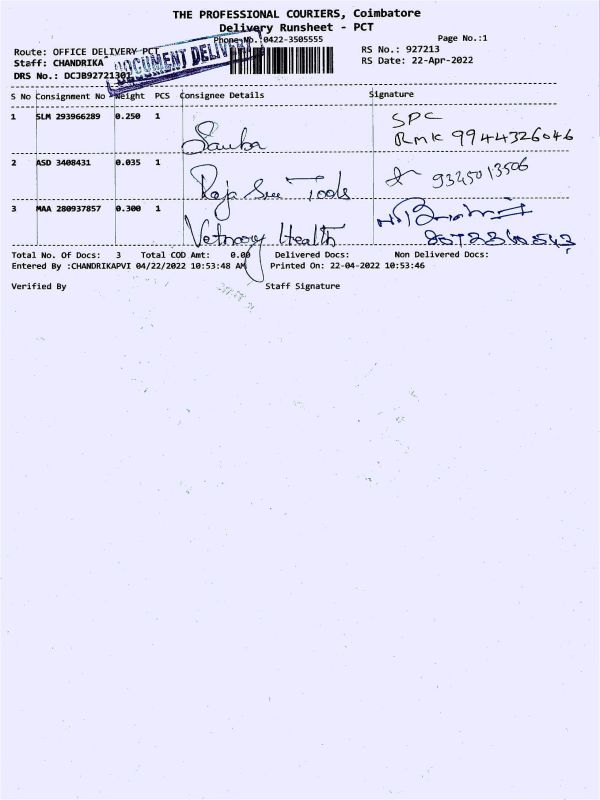 THE PROFESSIONAL COURIERS, Coimbatore
Delivery Runsheet - PCT
Phone No.:0422-3505555 Page No.:1
Route: OFFICE DELIVERY PCT RS No.: 927213
Staff: CHANDRIKA RS Date: 22-Apr-2022
DOCUMENT DELIVERY
DRS No.: DCJB92721301
S No Consignment No Weight PCS Consignee Details Signature
1 SLM 293966289 0.250 1 SPC
RMK 9944326046
2 ASD 3408431 0.035 1 Raja Sree Tools 9345013506
3 MAA 280937857 0.300 1 Vetnoory Health
Total No. Of Docs: 3 Total COD Amt: 0.00 Delivered Docs: Non Delivered Docs:
Entered By :CHANDRIKAPVI 04/22/2022 10:53:48 AM Printed On: 22-04-2022 10:53:46
Verified By Staff Signature